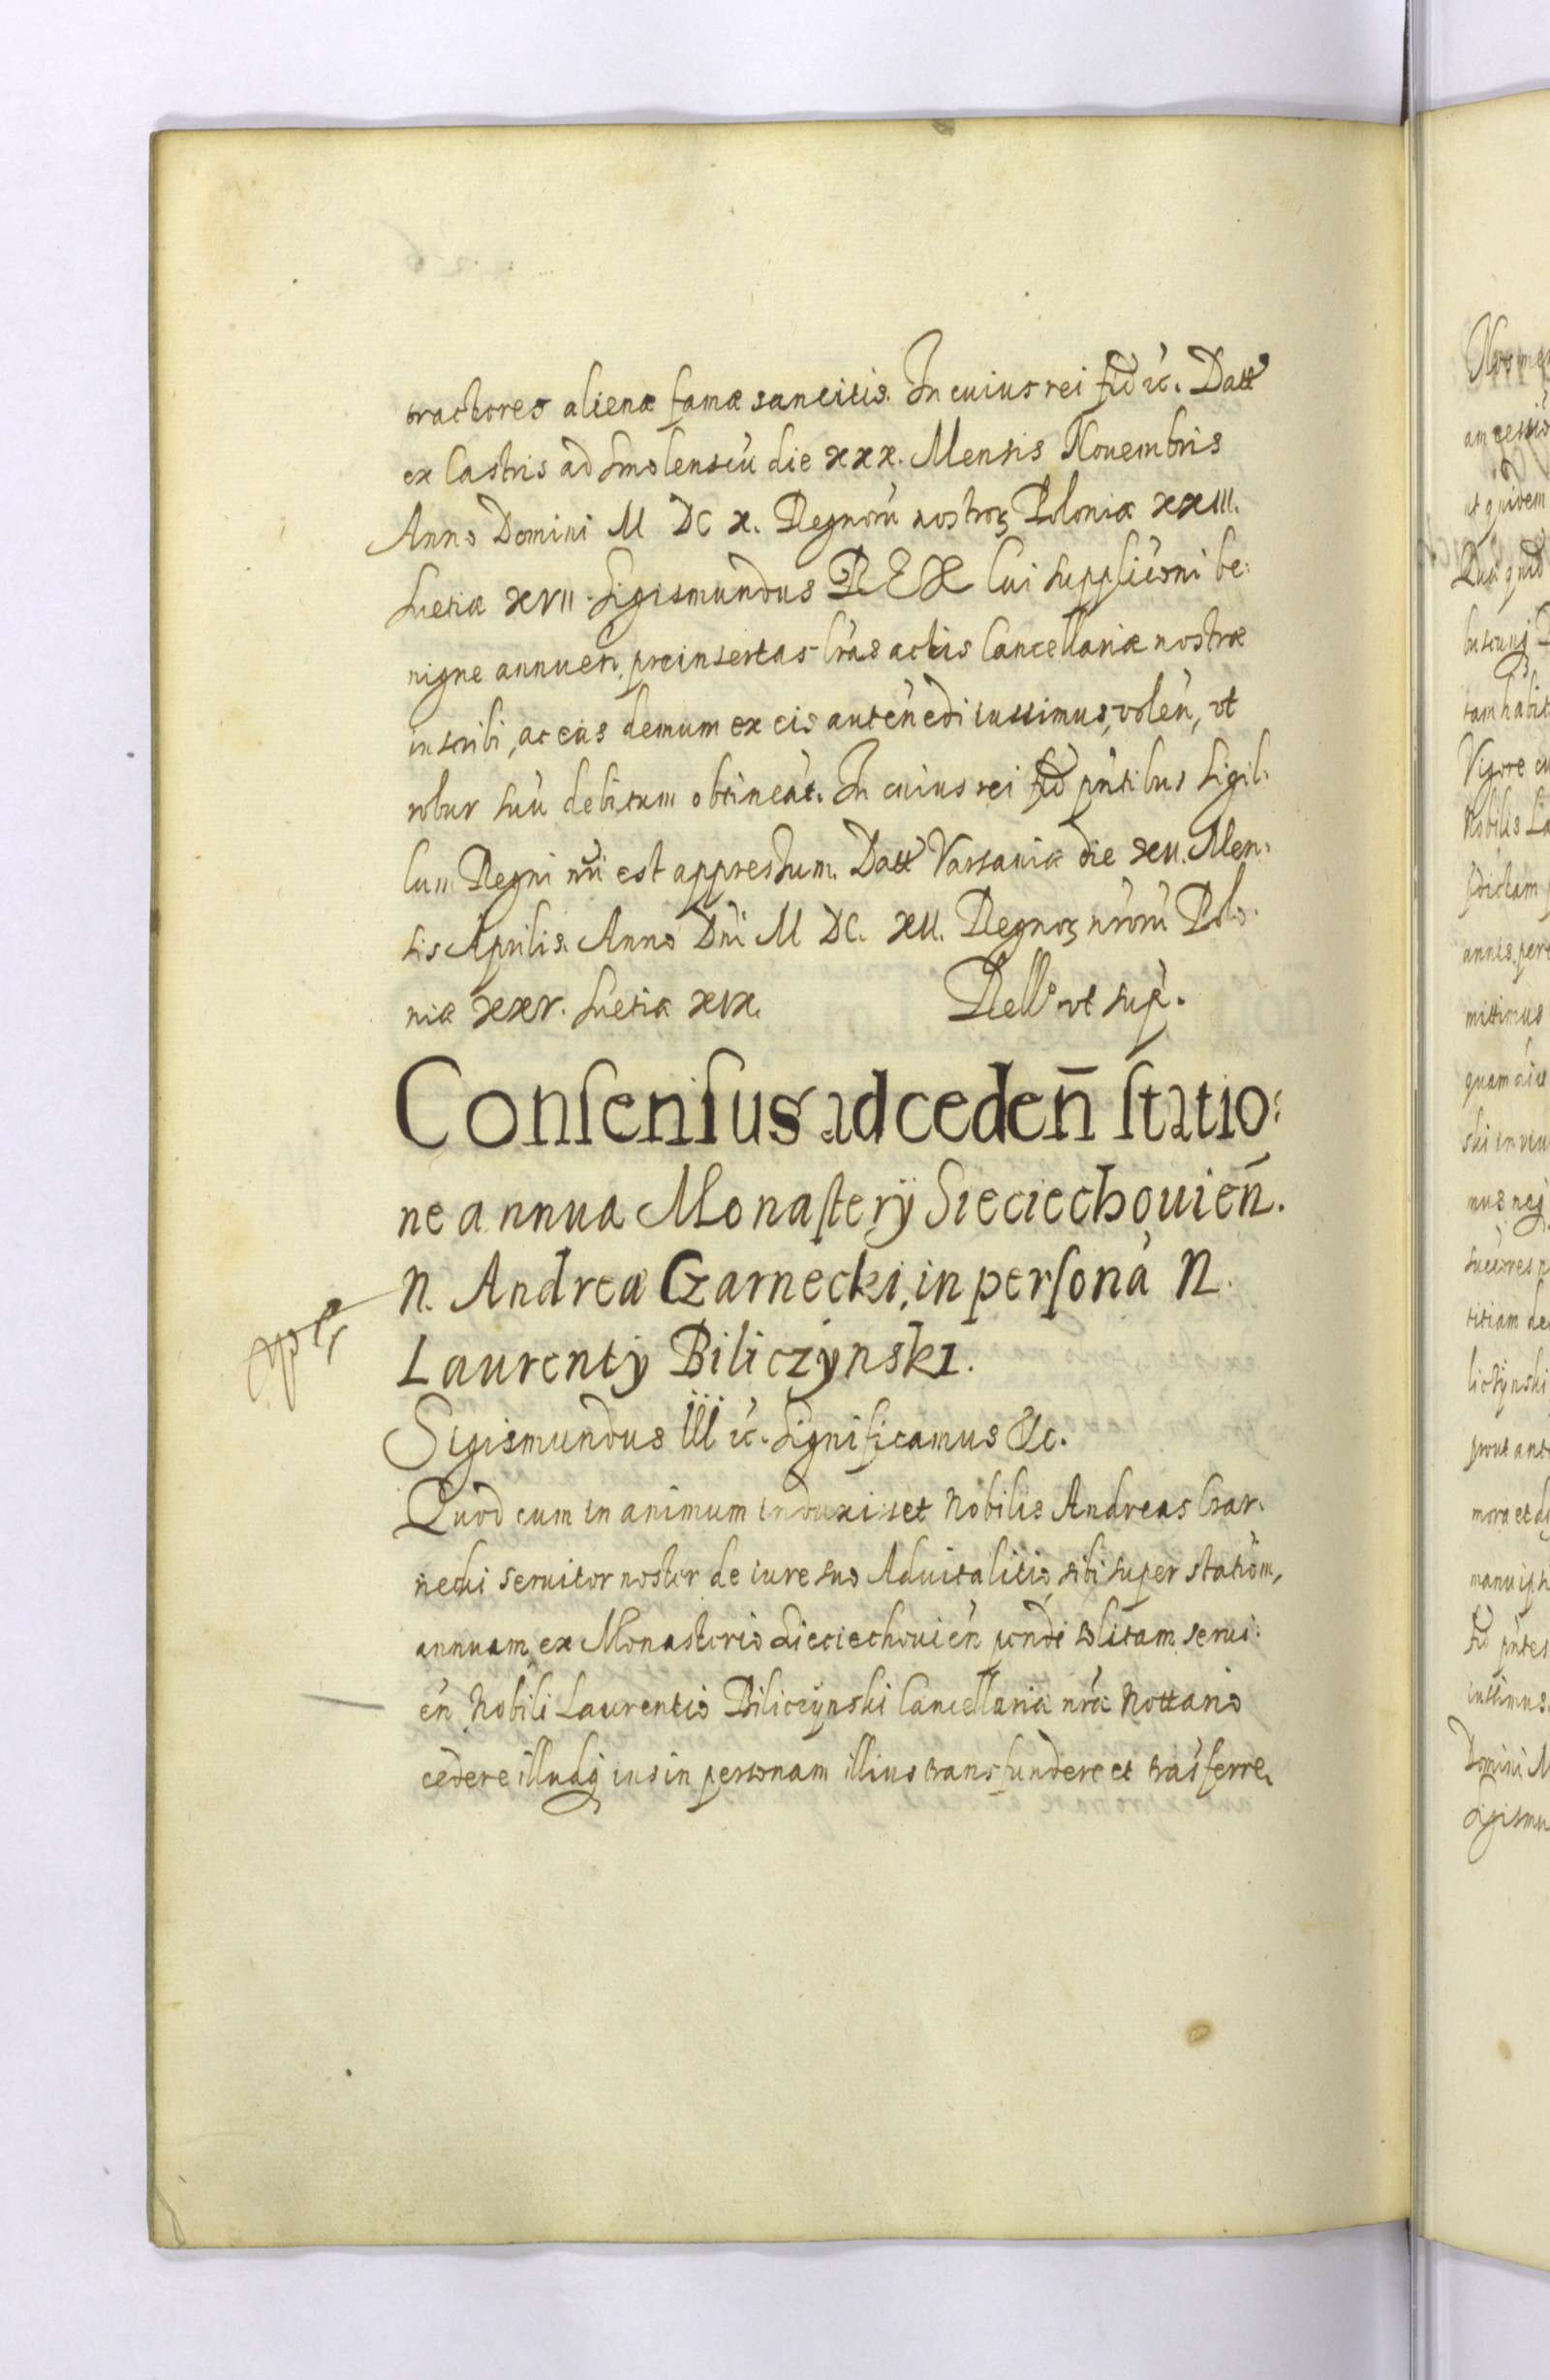 tractores alienæ famæ sancitis. In cuius rei fid ꝛc. Datt
ex Castris ad Smolenscū die xxx. Mensis Nouembris
Anno Domini M DC X. Regnorū nostroꝝ Poloniæ XXIII.
Sueciæ XVII. Sigismundus REX Cui supplicōni be:
nigne annuen. preinsertas lrās actis Cancellariæ nostræ
inscribi, ac eas demum ex eis autēn edi iussimus, volēn, vt
robur suū debitum obtineāt. In cuius rei fid pn̄tibus Sigil:
lum Regni nr̄i est appressum. Datt Varsauiæ die XIII. Men:
sis Aprilis. Anno Dn̄i M DC. XII. Regnoꝝ nr̄orū Polo:
niæ XXV. Sueciæ XIX. Rello vt sup̄.
Consensus ad ceden̄ statio:
ne annua Monasterÿ Sieciechouien̄.
N. Andreæ Czarnecki, in personā N.
Laurentÿ Biliczÿnski.
Sigismundus III ꝛc. Significamus &c.
Quod cum in animum induxisset Nobilis Andreas Czar:
necki seruitor noster de iure suo Aduitalitio, sibi super statiōm,
annuam ex Monasterio Sieciechouiēn pendi solitam serui:
ēn Nobili Laurentio Biliczÿnski Cancellariæ nr̄æ Nottario
cedere illudq̄ ius in personam illius transfundere et trāsferre,